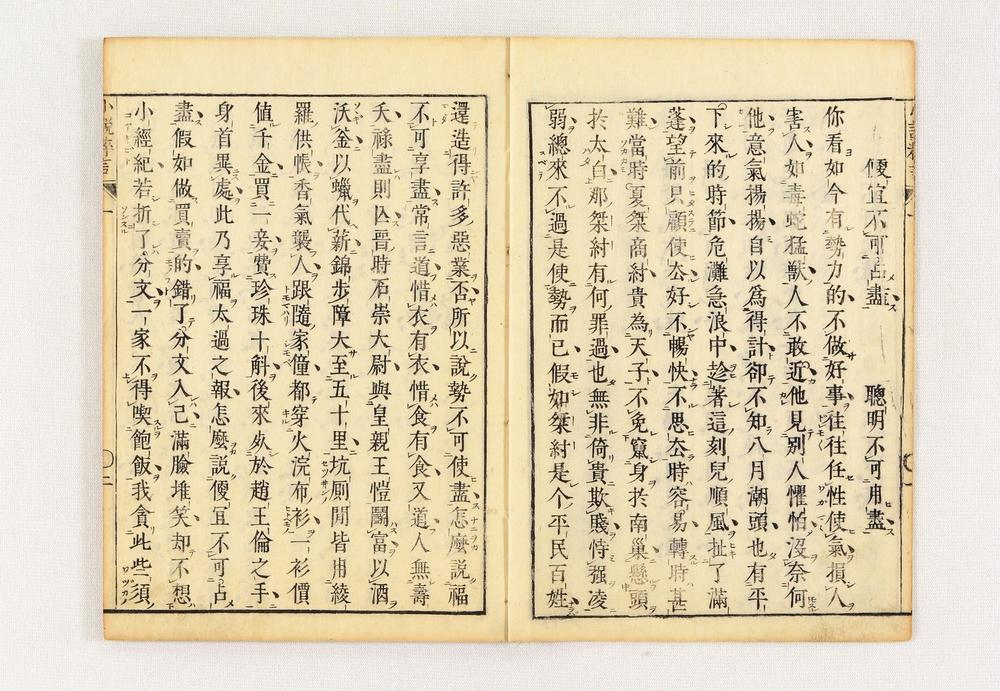 便宜不可占盡　聰明不可用盡
你看如今有勢力的不做好事往往任性使氣損人
害人如毒蛇猛獸人不敢近他見別人懼怕沒奈何
他意氣揚揚自以爲得計卻不知八月潮頭也有平
下來的時節危灘急浪中趁著這刻兒順風扯了滿
蓬望前只顧使厺好不暢快不思厺時容易轉時甚
難當時夏桀商紂貴為天子不免竄身於南巢懸頭
於太白那桀紂有何罪過也無非倚貴欺賤恃强凌
弱總來不過是使勢而已假如桀紂是个平民百姓
還造得許多惡業否所以說勢不可使盡怎麽說福
不可享盡常言道惜衣有衣惜食有食又道人無壽
夭祿盡則亾晉時石崇大尉與皇親王愷鬭富以酒
沃釜以蠟代薪錦步障大至五十里坑厠間皆用綾
羅供帳香氣襲人跟隨家僮都穿火浣布衫一衫價
値千金買一妾費珍珠十斛後來死於趙王倫之手
身首異處此乃享福太過之報怎麽說便宜不可占
盡假如做買賣的錯了分文入己滿臉堆笑却不想
小經紀若折了分文一家不得喫飽飯我貪此些須